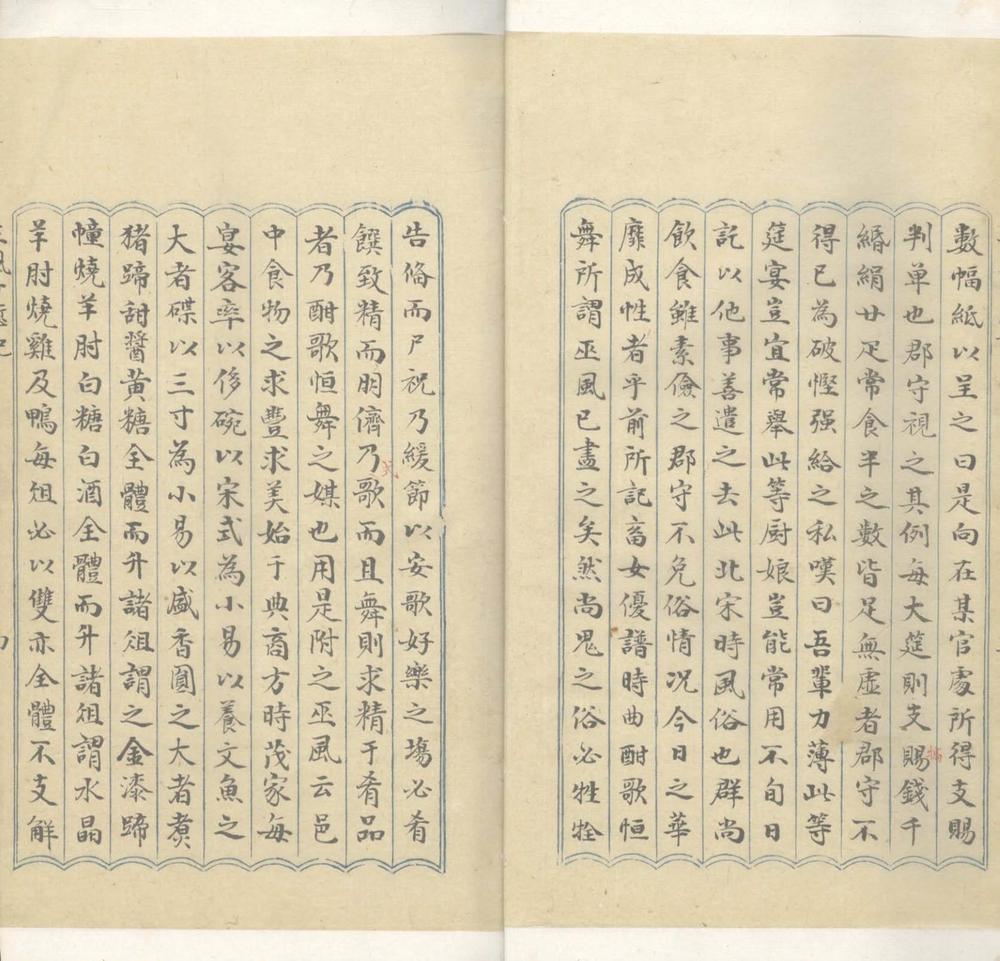 數幅紙以呈之曰是向在某官處所得支賜
判單也郡守視之其例每大筵則支賜錢千
緡絹廿疋常食半之數皆足無虛者郡守不
得已為破慳强給之私嘆曰吾輩力薄此等
筵宴豈宜常舉此等厨娘豈能常用不旬日
託以他事善遣之去此北宋時風俗也群尚
飲食雖素儉之郡守不免俗情况今日之華
靡成性者乎前所記畜女優譜時曲酣歌恒
舞所謂巫風已盡之矣然尚鬼之俗必牲牷
告偹而尸祝乃緩節以安歌好樂之塲必肴
饌致精而朋儕乃歌而且舞則求精于肴品
者乃酣歌恒舞之媒也用是附之巫風云邑
中食物之求豐求美始于典商方時茂家每
宴客率以侈碗以宋式為小易以養文魚之
大者碟以三寸為小易以盛香圓之大者煑
猪蹄甜醬黄糖全體而升諸俎謂之金漆蹄
幢燒羊肘白糖白酒全體而升諸俎謂水晶
羊肘燒雞及鴨每俎必以雙亦全體不支解